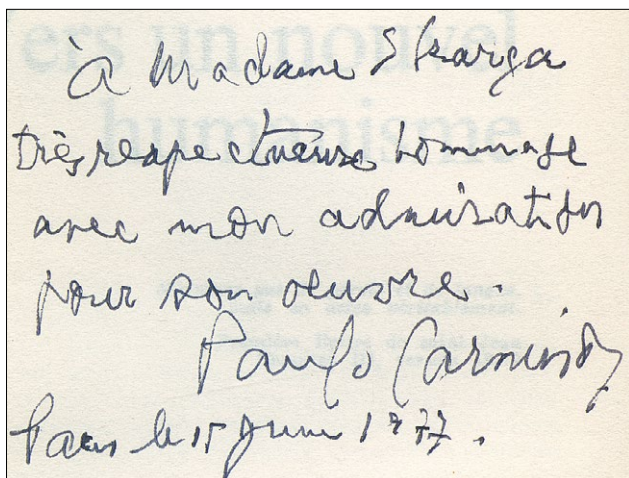 ers un nouvel
À Madame Skarga
humanisme
très respectueuse hommage
avec mon admiration
pour son oeuvre.
Paulo Carneiro
Paris le 15 Juin 1977.